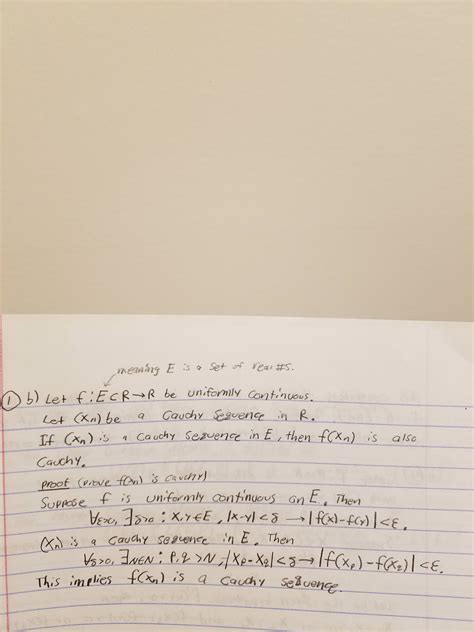 meaning E is a set of real #s.
① b) Let f: E⊂R→R be uniformly continuous.
Let (xn) be a Cauchy Sequence in R.
If (xn) is a Cauchy Sequence in E, then f(xn) is also
Cauchy.
proof (prove f(xn) is cauchy)
Suppose f is uniformly continuous on E. Then
∀ε>0, ∃δ>0: x,y∈E, |x-y|<δ → |f(x)-f(y)|<ε.
(xn) is a cauchy sequence in E. Then
∀δ>0, ∃N∈N: p,q>N, |xp-xq|<δ → |f(xp)-f(xq)|<ε.
This implies f(xn) is a Cauchy sequence.